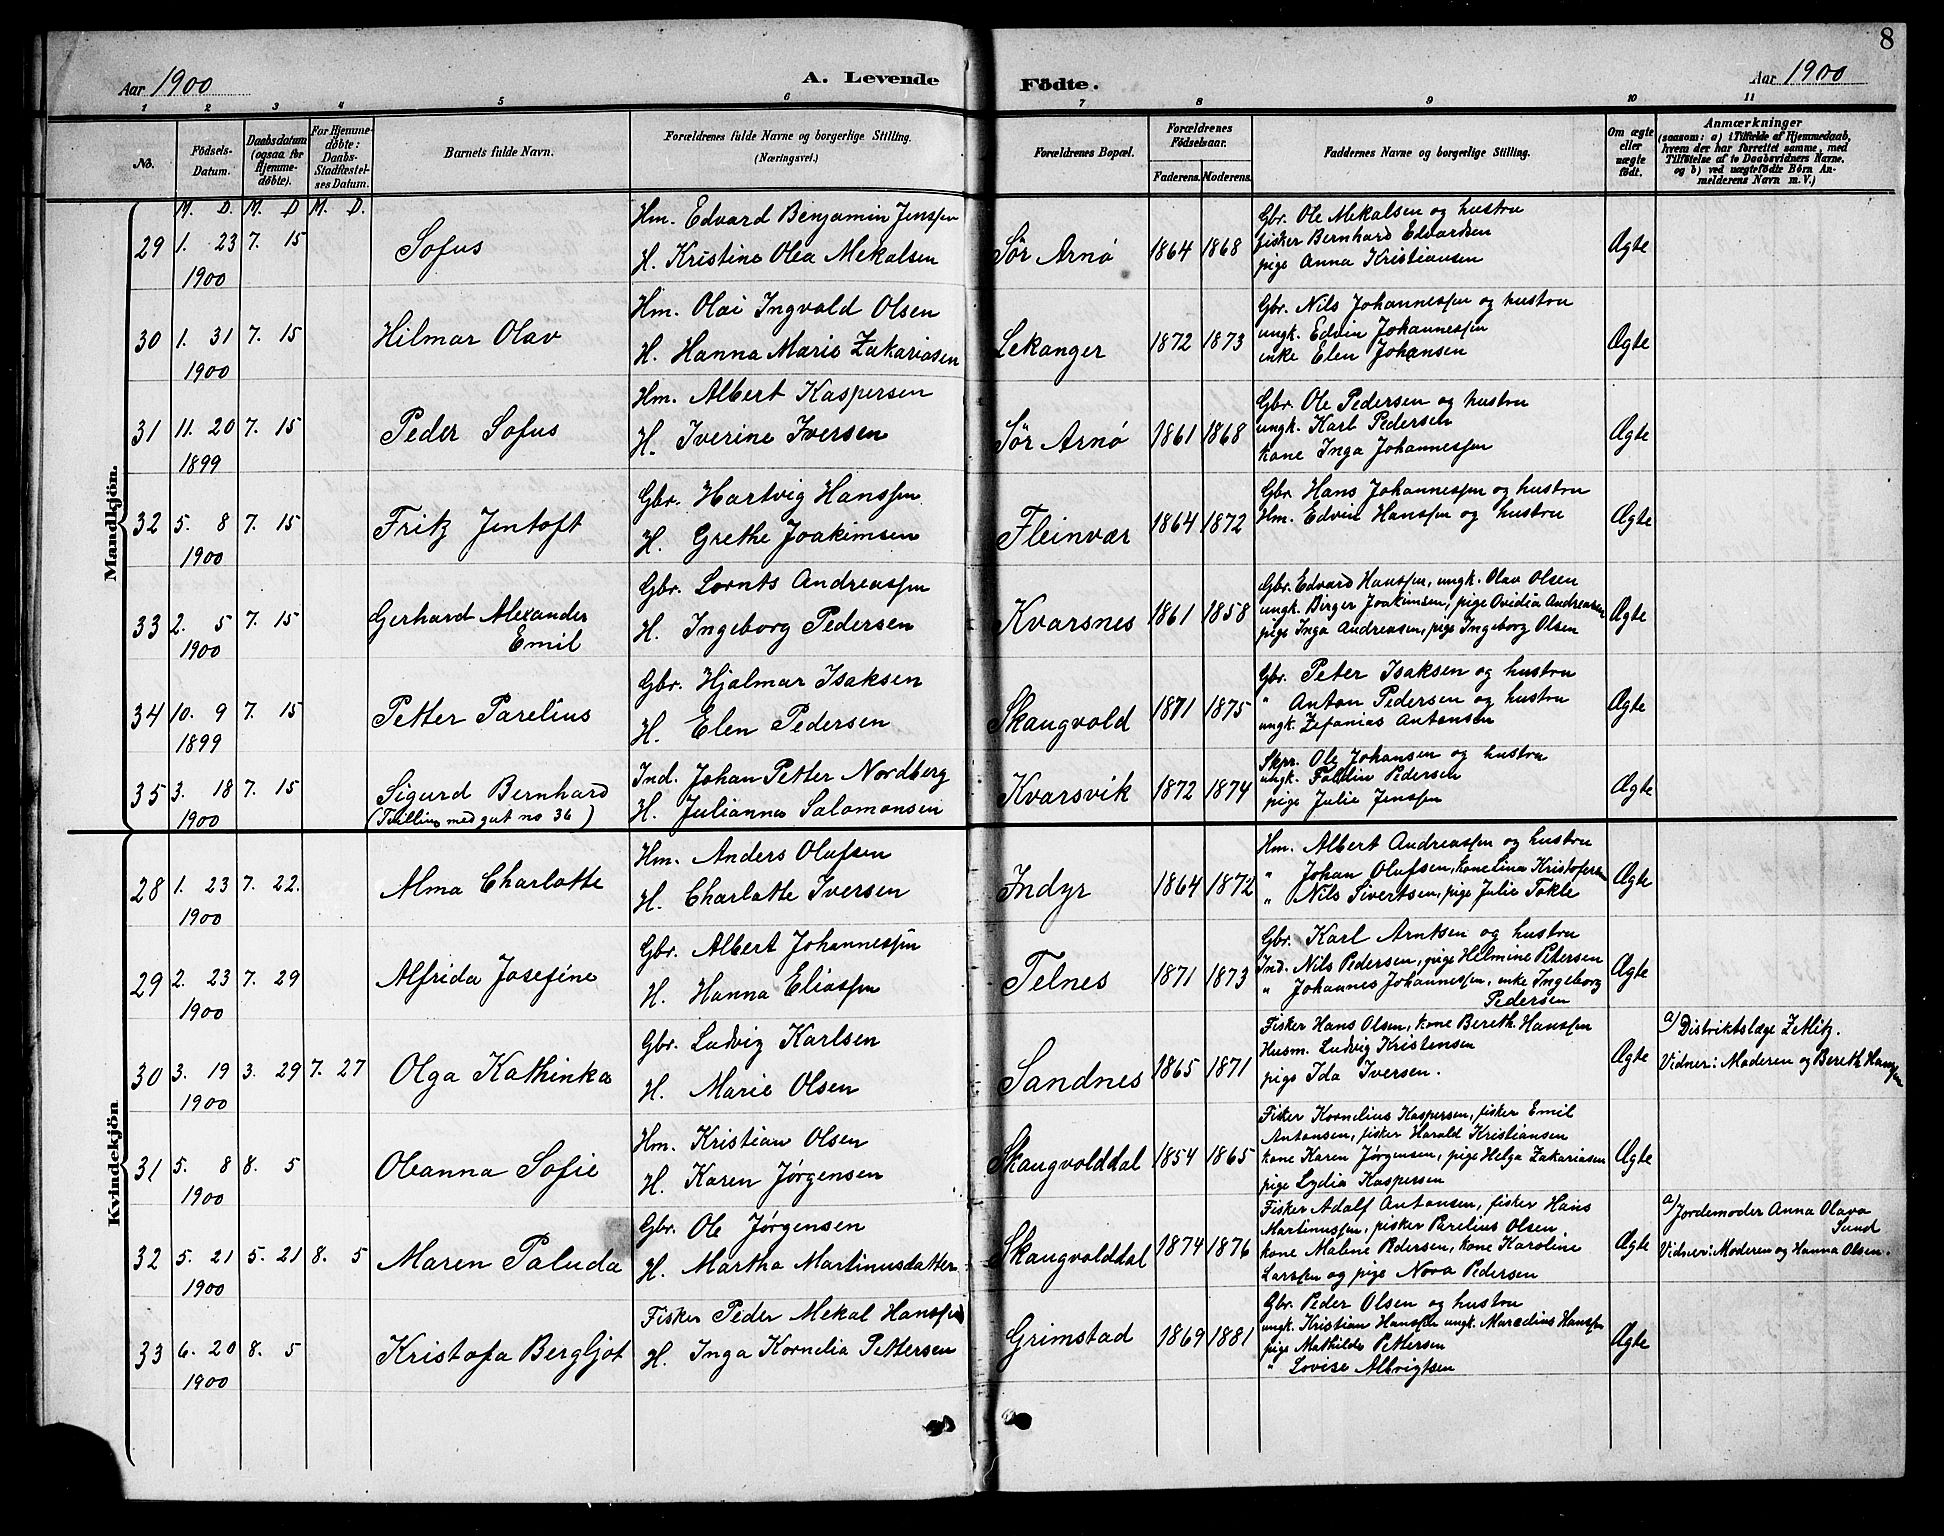 8
Aar 1900 A. Levende Födte. Aar 1900
1 2 3 4 5 6 7 8 9 10 11
No. Födsels-Datum. Daabsdatum (ogsaa for Hjemmedöbte). For Hjemmedöbte: Daabs-Stadfæstelses Datum. Barnets fulde Navn. Forældrenes fulde Navne og borgerlige Stilling. (Næringsvei.) Forældrenes Bopæl. Forældrenes Födselsaar. Faderens. Moderens. Faddernes Navne og borgerlige Stilling. Om ægte eller uægte födt. Anmærkninger (saasom: a) i Tilfælde af Hjemmedaab, hvem der har forrettet samme, med Tilföielse af to Daabsvidners Navne, og b) ved uægtefödte Börn Anmelderens Navn m. V.)
Mandkjön.
M. D. M. D. M. D.
29 1. 23 7. 15
1900
Sofus
Hm. Edvard Benjamin Jenssen
H. Kristine Olea Mekalsen
Sör Arnø 1864 1868
Gbr. Ole Mekalsen og hustru
fisker Bernhard Edvardsen
pige Anna Kristiansen
Ægte
30 1. 31 7. 15
1900
Hilmar Olav
Hm. Olai Ingvald Olsen
H. Hanna Marie Zakariasen
Lekanger 1872 1873
Gbr. Nils Johannessen og hustru
ungk. Edvin Johannessen
enke Elen Johansen
Ægte
31 11. 20 7. 15
1899
Peder Sofus
Hm. Albert Kaspersen
H. Iverine Iversen
Sör Arnø 1861 1868
Gbr. Ole Pedersen og hustru
ungk. Karl Pedersen
kone Inga Johannessen
Ægte
32 5. 8 7. 15
1900
Fritz Jentoft
Gbr. Hartvig Hanssen
H. Grethe Joakimsen
Fleinvær 1864 1872
Gbr. Hans Johannessen og hustru
Hm. Edvin Hanssen og hustru
Ægte
33 2. 5 7. 15
1900
Gerhard Alexander
Emil
Gbr. Lornts Andreassen
H. Ingeborg Pedersen
Kvarsnes 1861 1858
Gbr. Edvard Hanssen, ungk. Olav Olsen
ungk. Birger Joakimsen, pige Ovidia Andreasen
pige Inga Andreasen, pige Ingeborg Olsen
Ægte
34 10. 9 7. 15
1899
Petter Parelius
Gbr. Hjalmar Isaksen
H. Elen Pedersen
Skaugvold 1871 1875
Gbr. Peter Isaksen og hustru
" Anton Pedersen og hustru
ungk. Zefanias Antonsen
Ægte
35 3. 18 7. 15
1900
Sigurd Bernhard
(Tvilling med gut no 36)
Ind. Johan Petter Nordberg
H. Julianna Salomonsen
Kvarsvik 1872 1874
Skpr. Ole Johansen og hustru
ungk. Pedersen
pige Julie Jenssen
Ægte
Kvindekjön
28 1. 23 7. 22.
1900
Alma Charlotte
Hm. Anders Olufsen
H. Charlotte Iversen
Indyr 1864 1872
Hm. Albert Andreassen og hustru
" Johan Olufsen, kone Lina Kristofersen
" Nils Sivertsen, pige Julie Tokle
Ægte
29 2. 23 7. 29
1900
Alfrida Josefine
Gbr. Albert Johannessen
H. Hanna Eliassen
Telnes 1871 1873
Gbr. Karl Arntsen og hustru
Ind. Nils Pedersen, pige Helmine Petersen
" Johannes Johannessen, enke Ingeborg
Pedersen
Ægte
30 3. 19 3. 29 7. 27
1900
Olga Kathinka
Gbr. Ludvig Karlsen
H. Marie Olsen
Sandnes 1865 1871
Fisker Hans Olsen, kone Bereth. Hanssen
Husm. Ludvig Kristensen
pige Ida Iversen.
Ægte
a) Distriktslæge Zetlitz.
Vidner: Moderen og Bereth Hanssen
31 5. 8 8. 5
1900
Oleanna Sofie
Hm. Kristian Olsen
H. Karen Jørgensen
Skaugvolddal 1854 1865
Fisker Kornelius Kaspersen, fisker Emil
Antonsen, fisker Harald Kristiansen
kone Karen Jørgensen, pige Helga Zakariasen
pige Lydia Kaspersen
Ægte
32 5. 21 5. 21 8. 5
1900
Maren Paluda
Gbr. Ole Jørgensen
H. Martha Martinusdatter
Skaugvolddal 1874 1876
Fisker Adolf Antonsen, fisker Hans
Martinussen, fisker Parelius Olsen
kone Malene Pedersen, kone Karoline
Larssen og pige Nora Pedersen
Ægte
a) Jordemoder Anna Olava
Sund
Vidner: Moderen og Hanna Olsen.
33 6. 20 8. 5
1900
Kristofa Bergljot
Fisker Peder Mekal Hanssen
H. Inga Kornelia Pettersen
Grimstad 1869 1881
Gbr. Peder Olsen og hustru
ungk. Kristian Hanssen ungk. Marcelius Hanssen
pige Mathilde Pettersen
" Lovise Albrigtsen
Ægte